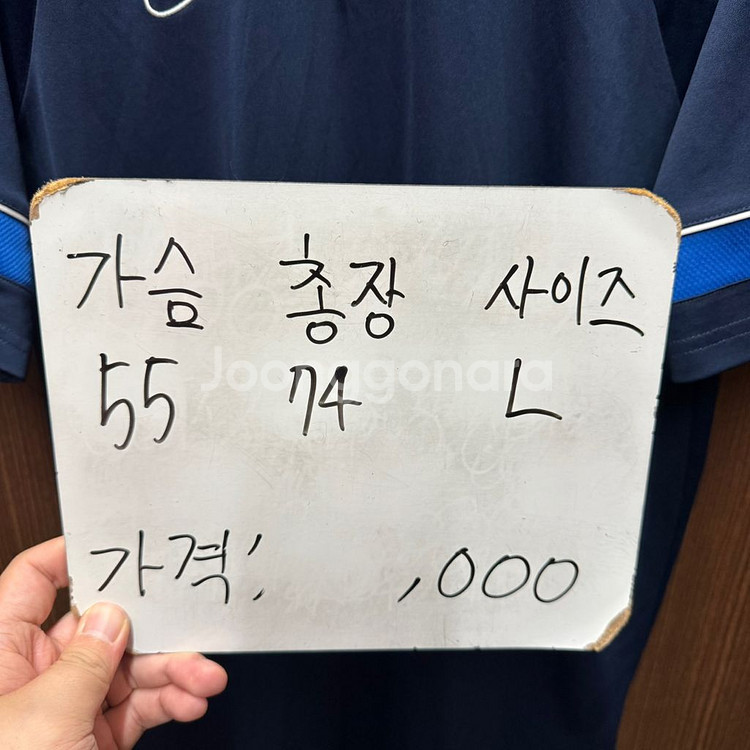 가슴 총장 사이즈
55 74 L
Joonggonara
가격: ,000